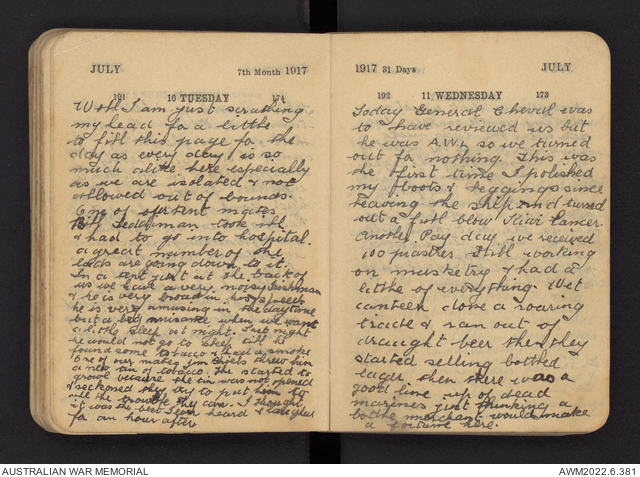 JULY 7th Month 1917
191 10 TUESDAY 174
Well I am just scratching
my head for a little
to fill this page for the
day as every day is so
much alike here especially
as we are isolated & not
allowed out of bounds.
One of our tent mates
took ill
& had to go into hospital.
a great number of the
lads are going down to it.
In a tent just at the back of
us we have a very noisy Irishman
& he is very broad in his speech
he is very amusing in the daytime
but a big nuisance when we want
a little sleep at night. Last night
he would not go to sleep till he
found some tobacco & had a smoke
One of our mates Jim threw him
a new tin of tobacco. The started to
growl because the tin was not opened
& reckoned they try to put him to
all the trouble they can. I thought
it was the best I ever heard & laughed
for an hour after
1917 31 Days JULY
192 11 WEDNESDAY 173
Today General Cheval was
to have reviewed us but
he was A.W.L so we turned
out for nothing. This was
the first time I polished
my Boots & leggings since
leaving the ship and turned
out a full blow Kiwi Lancer.
Another Pay day we received
100 piastres Still working
on musketry & had a
little of everything. Wet
canteen done a roaring
trade & ran out of
draught beer then they
started selling bottled
lager then there was a
good line up of dead
marines just thinking a
bottle merchant would make
a fortune here.
AUSTRALIAN WAR MEMORIAL
AWM2022.6.381